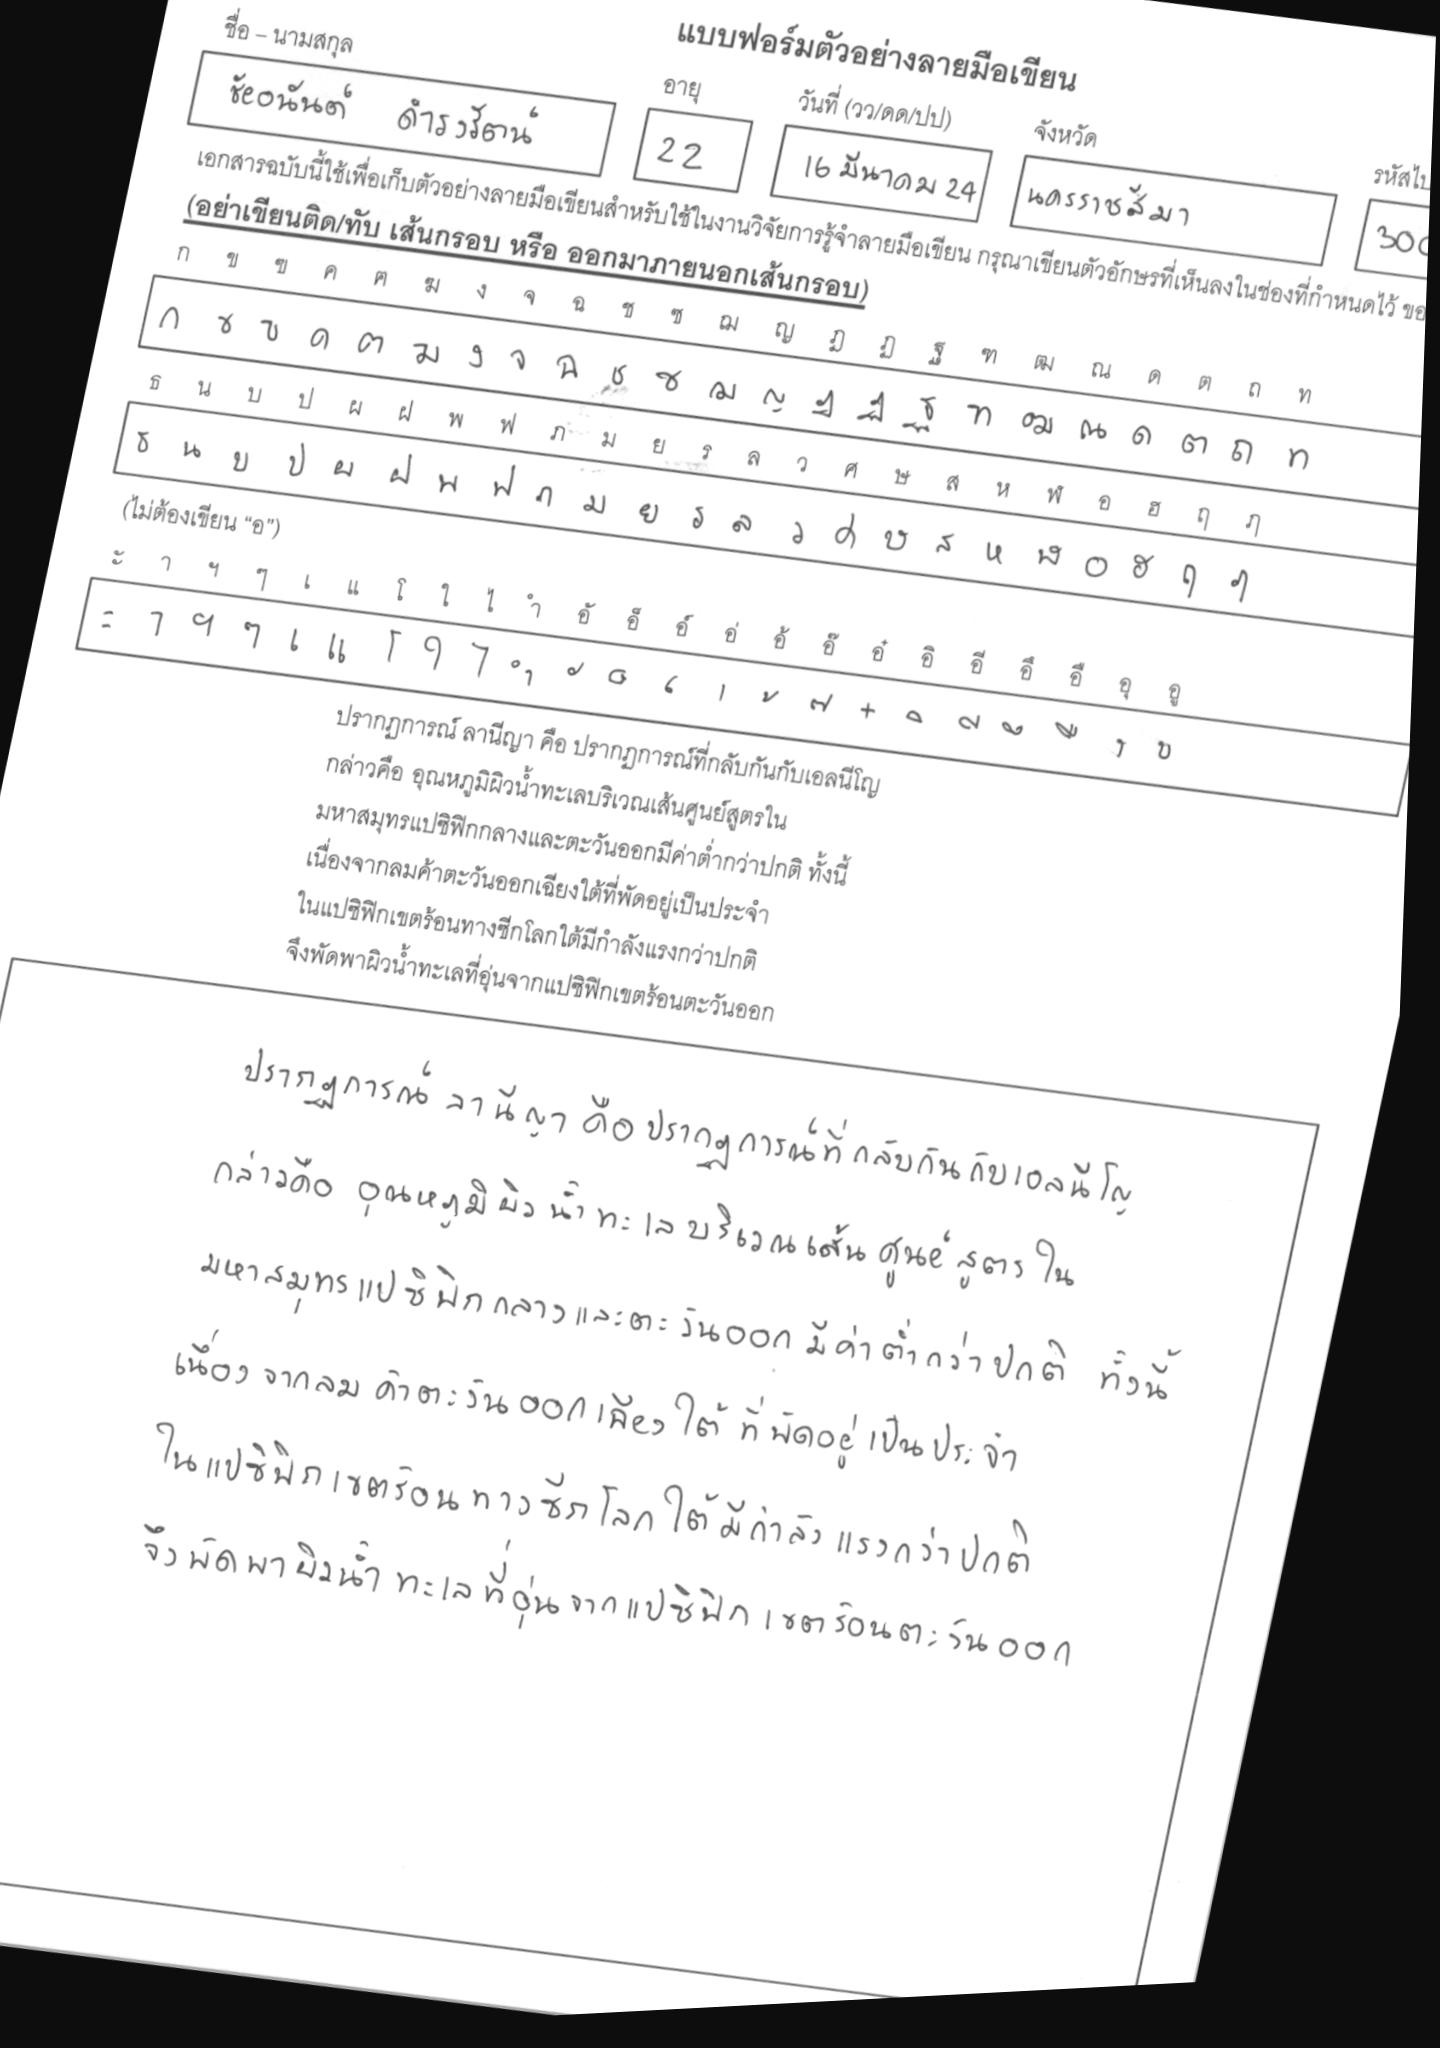 แบบฟอร์มตัวอย่างลายมือเขียน
ชื่อ – นามสกุล อายุ วันที่ (วว/ดด/ปป) จังหวัด
ชัยอนันต์ ดำรงรัตน์ 22 16 มีนาคม 24 นครราชสีมา
เอกสารฉบับนี้ใช้เพื่อเก็บตัวอย่างลายมือเขียนสำหรับใช้ในงานวิจัยการรู้จำลายมือเขียน กรุณาเขียนตัวอักษรที่เห็นลงในช่องที่กำหนดไว้
(อย่าเขียนติด/ทับ เส้นกรอบ หรือ ออกมาภายนอกเส้นกรอบ)
ก ข ฃ ค ฅ ฆ ง จ ฉ ช ซ ฌ ญ ฎ ฏ ฐ ฑ ฒ ณ ด ต ถ ท
ก ข ฃ ค ฅ ฆ ง จ ฉ ช ซ ฌ ญ ฎ ฏ ฐ ฑ ฒ ณ ด ต ถ ท
ธ น บ ป ผ ฝ พ ฟ ภ ม ย ร ล ว ศ ษ ส ห ฬ อ ฮ ฤ ฦ
ธ น บ ป ผ ฝ พ ฟ ภ ม ย ร ล ว ศ ษ ส ห ฬ อ ฮ ฤ ฦ
(ไม่ต้องเขียน “อ”)
ะ า ฯ ๆ เ แ โ ใ ไ ำ อั อ็ อ์ อ่ อ้ อ๊ อ๋ อิ อี อึ อื อุ อู
ะ า ฯ ๆ เ แ โ ใ ไ ำ ั ็ ์ ่ ้ ๊ ๋ ิ ี ึ ื ุ ู
ปรากฏการณ์ ลานีญา คือ ปรากฏการณ์ที่กลับกันกับเอลนีโญ
กล่าวคือ อุณหภูมิผิวน้ำทะเลบริเวณเส้นศูนย์สูตรใน
มหาสมุทรแปซิฟิกกลางและตะวันออกมีค่าต่ำกว่าปกติ ทั้งนี้
เนื่องจากลมค้าตะวันออกเฉียงใต้ที่พัดอยู่เป็นประจำ
ในแปซิฟิกเขตร้อนทางซีกโลกใต้มีกำลังแรงกว่าปกติ
จึงพัดพาผิวน้ำทะเลที่อุ่นจากแปซิฟิกเขตร้อนตะวันออก
ปรากฏการณ์ ลานีญา คือ ปรากฏการณ์ที่กลับกันกับเอลนีโญ
กล่าวคือ อุณหภูมิผิวน้ำทะเลบริเวณเส้นศูนย์สูตรใน
มหาสมุทรแปซิฟิกกลางและตะวันออกมีค่าต่ำกว่าปกติ ทั้งนี้
เนื่องจากลมค้าตะวันออกเฉียงใต้ที่พัดอยู่เป็นประจำ
ในแปซิฟิกเขตร้อนทางซีกโลกใต้มีกำลังแรงกว่าปกติ
จึงพัดพาผิวน้ำทะเลที่อุ่นจากแปซิฟิกเขตร้อนตะวันออก